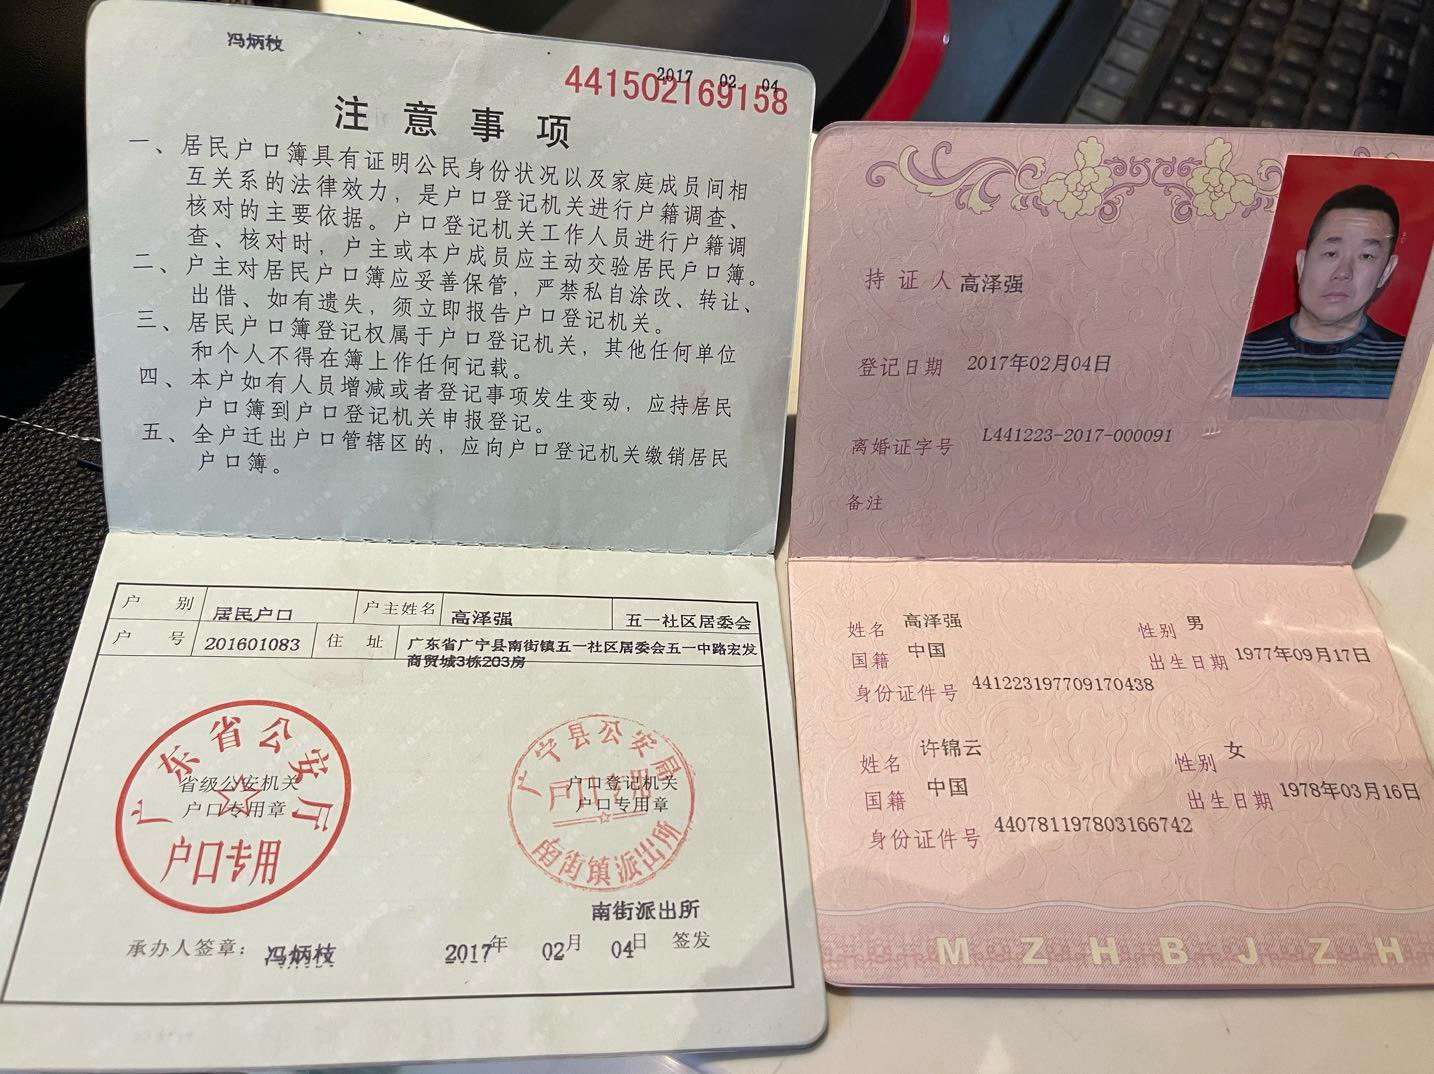 冯炳枝
2017 02 04
441502169158
注意事项
一、居民户口簿具有证明公民身份状况以及家庭成员间相
互关系的法律效力，是户口登记机关进行户籍调查、
核对的主要依据。户口登记机关工作人员进行户籍调
查、核对时，户主或本户成员应主动交验居民户口簿。
二、户主对居民户口簿应妥善保管，严禁私自涂改、转让、
出借、如有遗失，须立即报告户口登记机关。
三、居民户口簿登记权属于户口登记机关，其他任何单位
和个人不得在簿上作任何记载。
四、本户如有人员增减或者登记事项发生变动，应持居民
户口簿到户口登记机关申报登记。
五、全户迁出户口管辖区的，应向户口登记机关缴销居民
户口簿。
户别 居民户口 户主姓名 高泽强 五一社区居委会
户号 201601083 住址 广东省广宁县南街镇五一社区居委会五一中路宏发
商贸城3栋203房
广东省公安厅
省级公安机关
户口专用章
户口专用
广宁县公安局
户口专用
户口登记机关
户口专用章
南街镇派出所
南街派出所
承办人签章：冯炳枝 2017年 02月 04日 签发
持证人 高泽强
登记日期 2017年02月04日
离婚证字号 L441223-2017-000091
备注
姓名 高泽强 性别 男
国籍 中国 出生日期 1977年09月17日
身份证件号 441223197709170438
姓名 许锦云 性别 女
国籍 中国 出生日期 1978年03月16日
身份证件号 440781197803166742
MZHBJZH